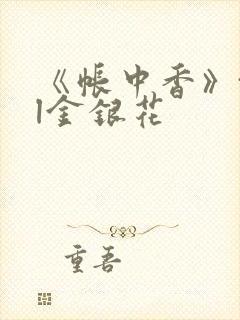 《帐中香》
金银花
重吾